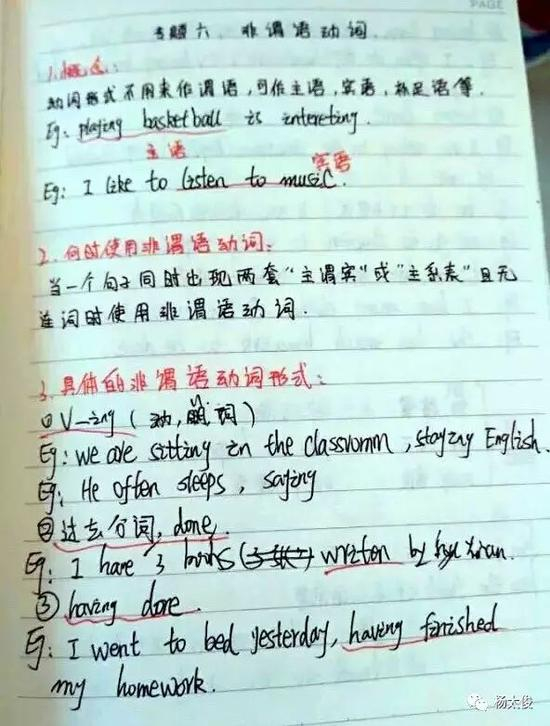 PAGE
专题六、非谓语动词.
1.概念:
动词形式不用来作谓语,可作主语,宾语,补足语等.
Eg: playing basketball is intereting.
主语
宾语
Eg: I like to listen to music.
2.何时使用非谓语动词:
当一个句子同时出现两套“主谓宾”或“主系表”且无
连词时使用非谓语动词.
3.具体的非谓语动词形式:
① V-ing (动, 词)
Eg: we are sitting in the classromm, stayzng English.
Eg: He often sleeps, saying
②过去分词, done.
Eg: I have 3 books written by
③ having done.
Eg: I went to bed yesterday, having finished
my homework.
杨太俊